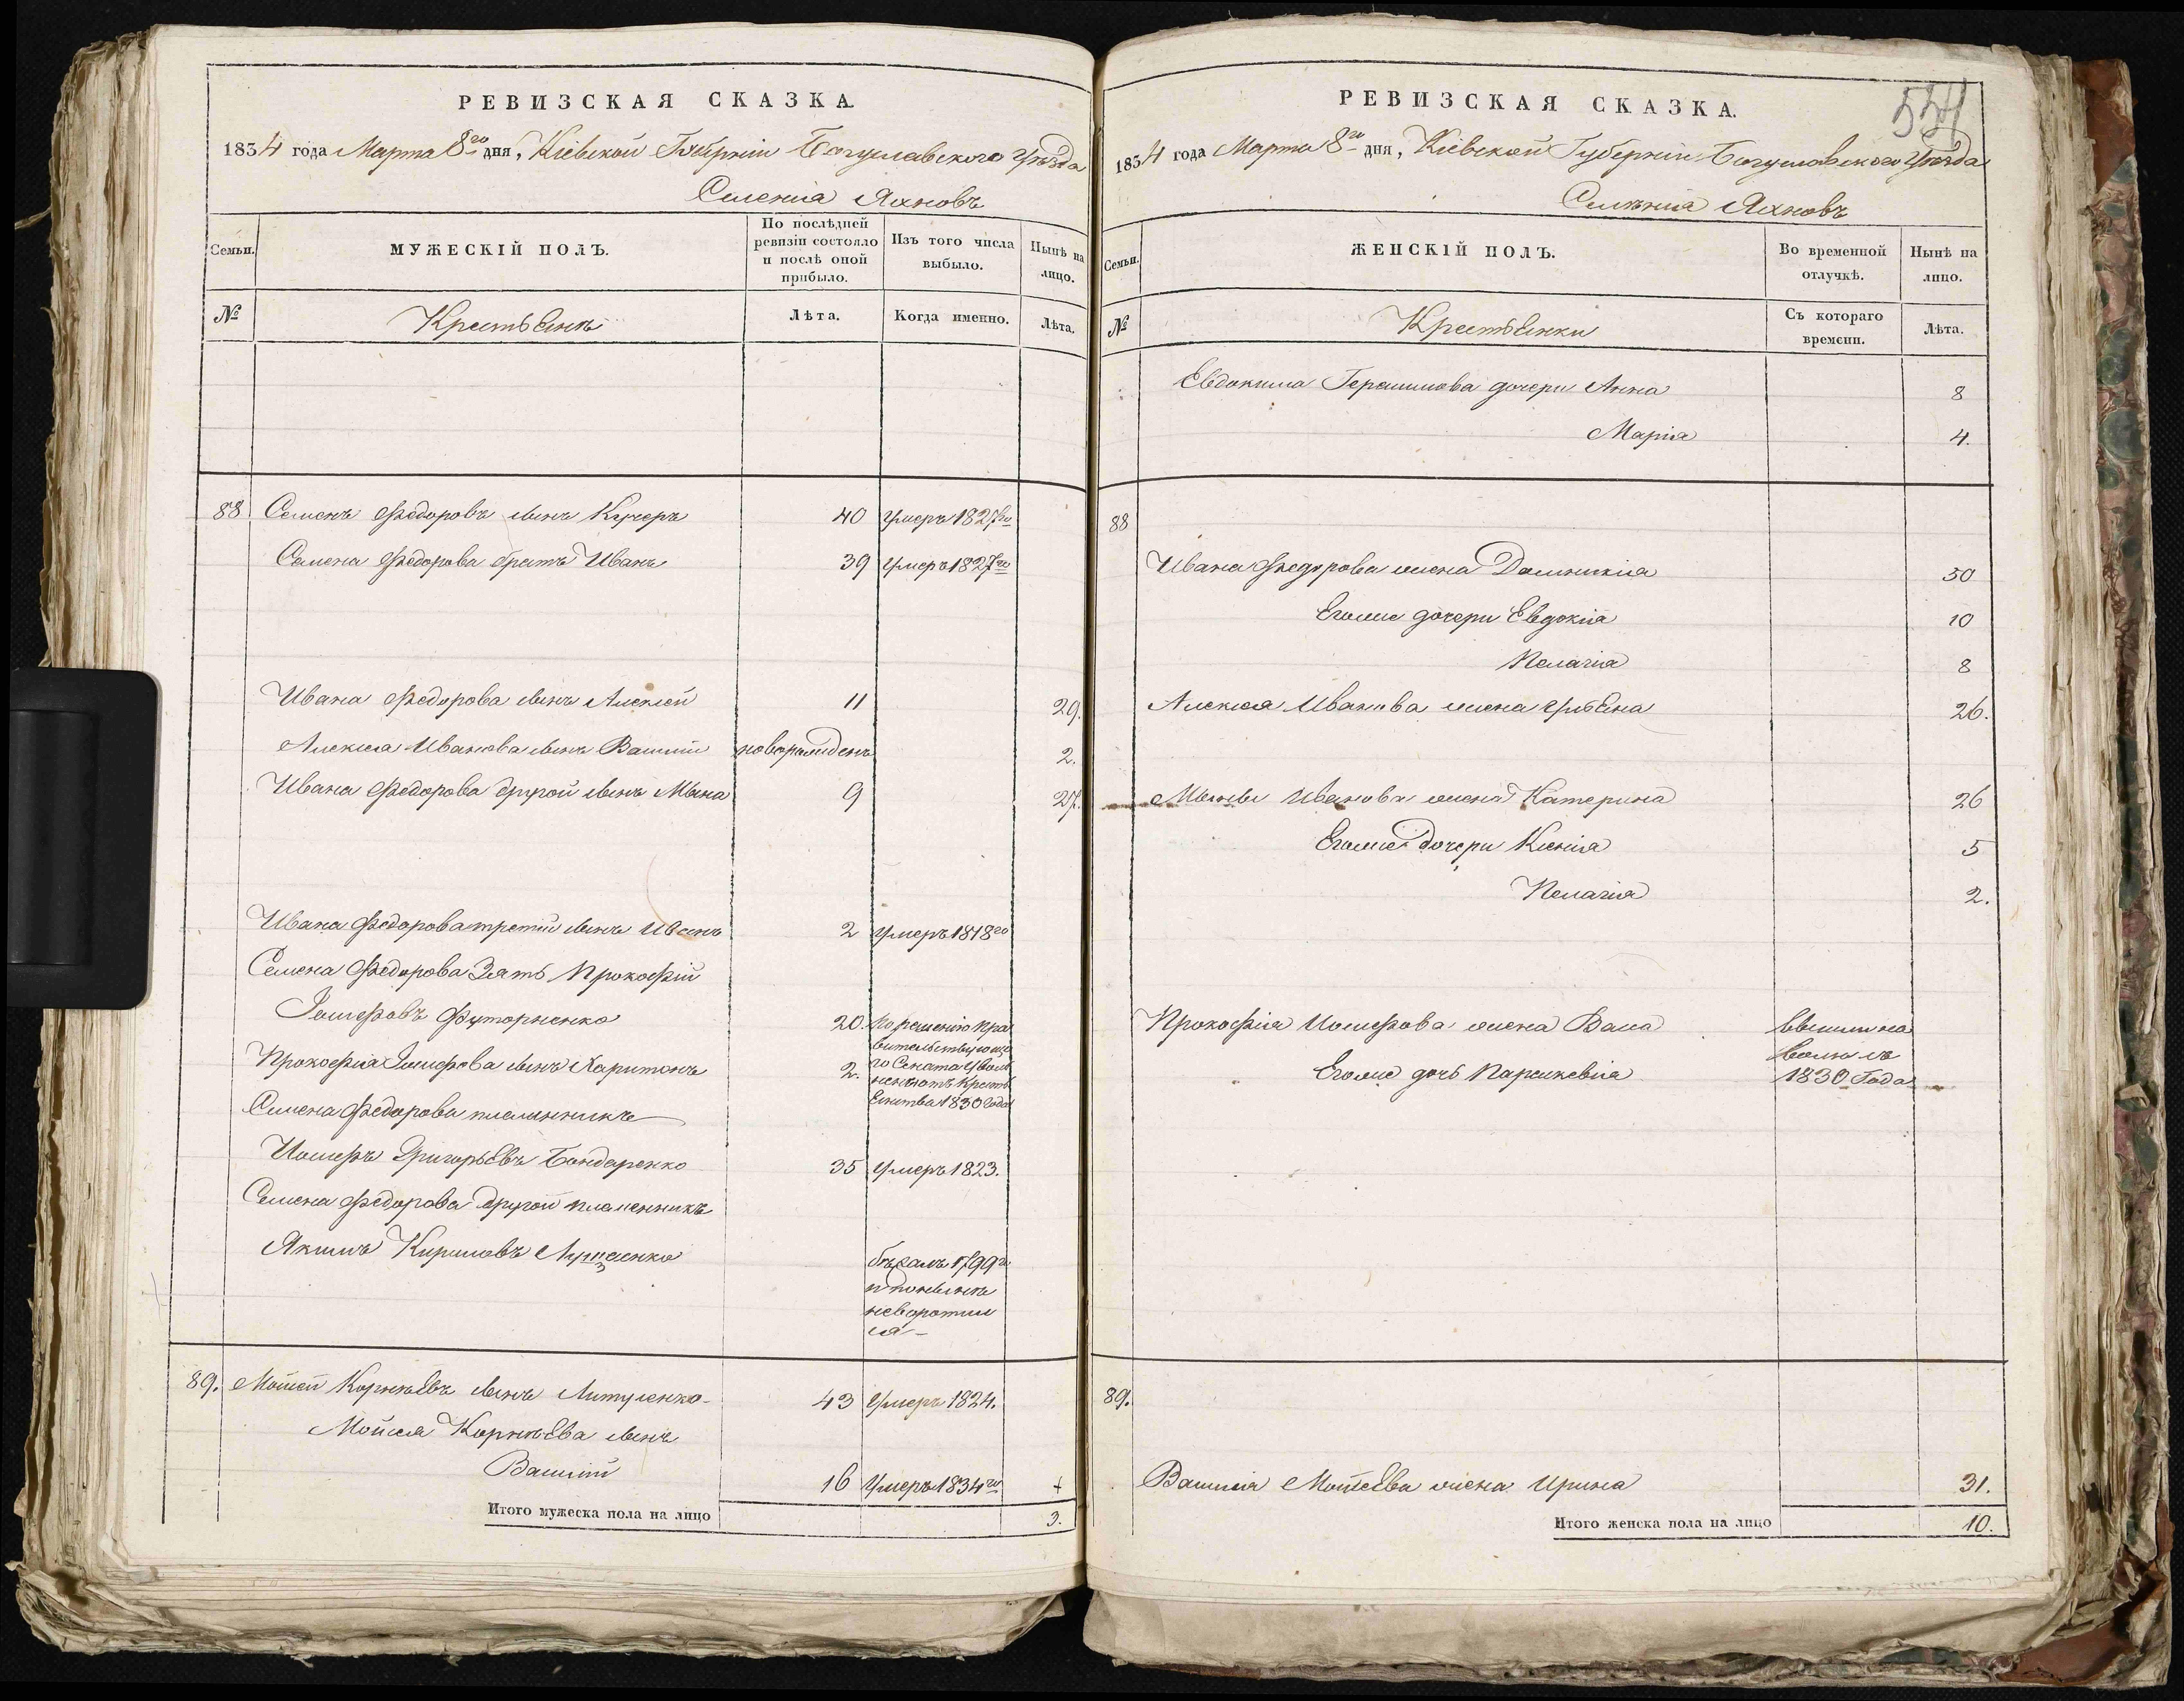 РЕВИЗСКАЯ СКАЗКА.
1834 года Марта 8го дня, Кіевской Губерніи Богуславского Уѣзда
Селенія Яхновъ
Семьи.
МУЖЕСКІЙ ПОЛЪ.
По послѣдней ревизіи состояло и послѣ оной прибыло.
Изъ того числа выбыло.
Нынѣ на лицо.
№
Крестьянъ
Лѣта.
Когда именно.
Лѣта.
88 Семенъ Федоровъ сынъ Кучеръ 40 умеръ 1827го
Семена Федорова братъ Иванъ 39 умеръ 1827го
Ивана Федорова сынъ Алексей 11 29.
Алексея Иванова сынъ Василий новорожденъ 2.
Ивана Федорова другой сынъ Мина 9 27.
Ивана Федорова третий сынъ Иванъ 2 умеръ 1818го
Семена Федорова Зять Прокофій
Іосифовъ Футорненко 20. по решенію Пра
вительствующе
Прокофія Іосифова сынъ Харитонъ 2. го Сената Уволь
ненъ отъ Кресть
Семена Федорова племянникъ Енства 1830 Года
Иосифъ ГригорьЕвъ Бондаренко 35 умеръ 1823.
Семена Федорова другой племенникъ
Якимъ Кириловъ бѣжалъ 1799го
и понынѣ
неворотил
ся
89. Мойсей КорнѣЕвъ сынъ Литуленко 43 Умеръ 1824.
Мойсея КорнѣЕва сынъ
Василій 16 Умеръ 1834го +
Итого мужеска пола на лицо 3.
РЕВИЗСКАЯ СКАЗКА.
554
1834 года Марта 8го дня, Кіевской Губерніи Богуславского Уѣзда
Селенія Яхновъ
Семьи.
ЖЕНСКІЙ ПОЛЪ.
Во временной отлучкѣ.
Нынѣ на лицо.
№
КрестьЕнки
Съ котораго времени.
Лѣта.
Евдокима Герасимова дочери Анна 8
Марія 4.
88
Ивана Федорова жена Домникія 50
Егоже дочери Евдокія 10
Пелагія 8
Алексея Иванова жена УльЕна 26.
Мины Иванова жена Катерина 26
Егоже Дочери Ксенія 5
Пелагія 2.
Прокофія Иосифова жена Васа
Егоже дочь Параскевіа 1830 Года
89.
Василія МойсеЕва жена Ирина 31.
Итого женска пола на лицо 10.